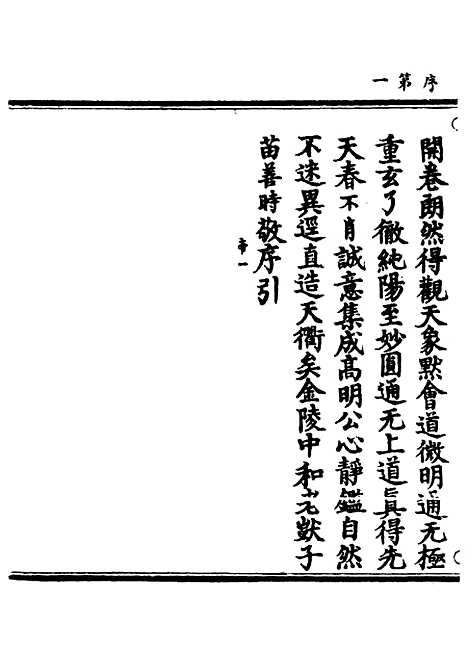 序第一
開卷朗然得觀天象黙會道微明通无極
重玄了徹純陽至妙圓通无上道眞得先
天春不肖誠意集成高明公心靜鑑自然
不迷異逕直造天衢矣金陵中和獃子
苗善時敬序引
帝一